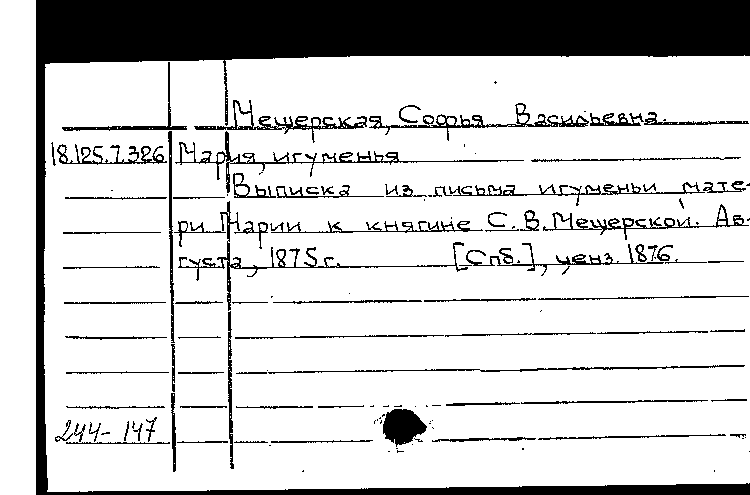 Мещерская, Софья Васильевна.
18.125.7.326 Мария, игуменья
Выписка из письма игуменьи мате-
ри Марии к княгине С. В. Мещерской. Ав-
густа, 1875 г. [Спб.], ценз. 1876.
244-147